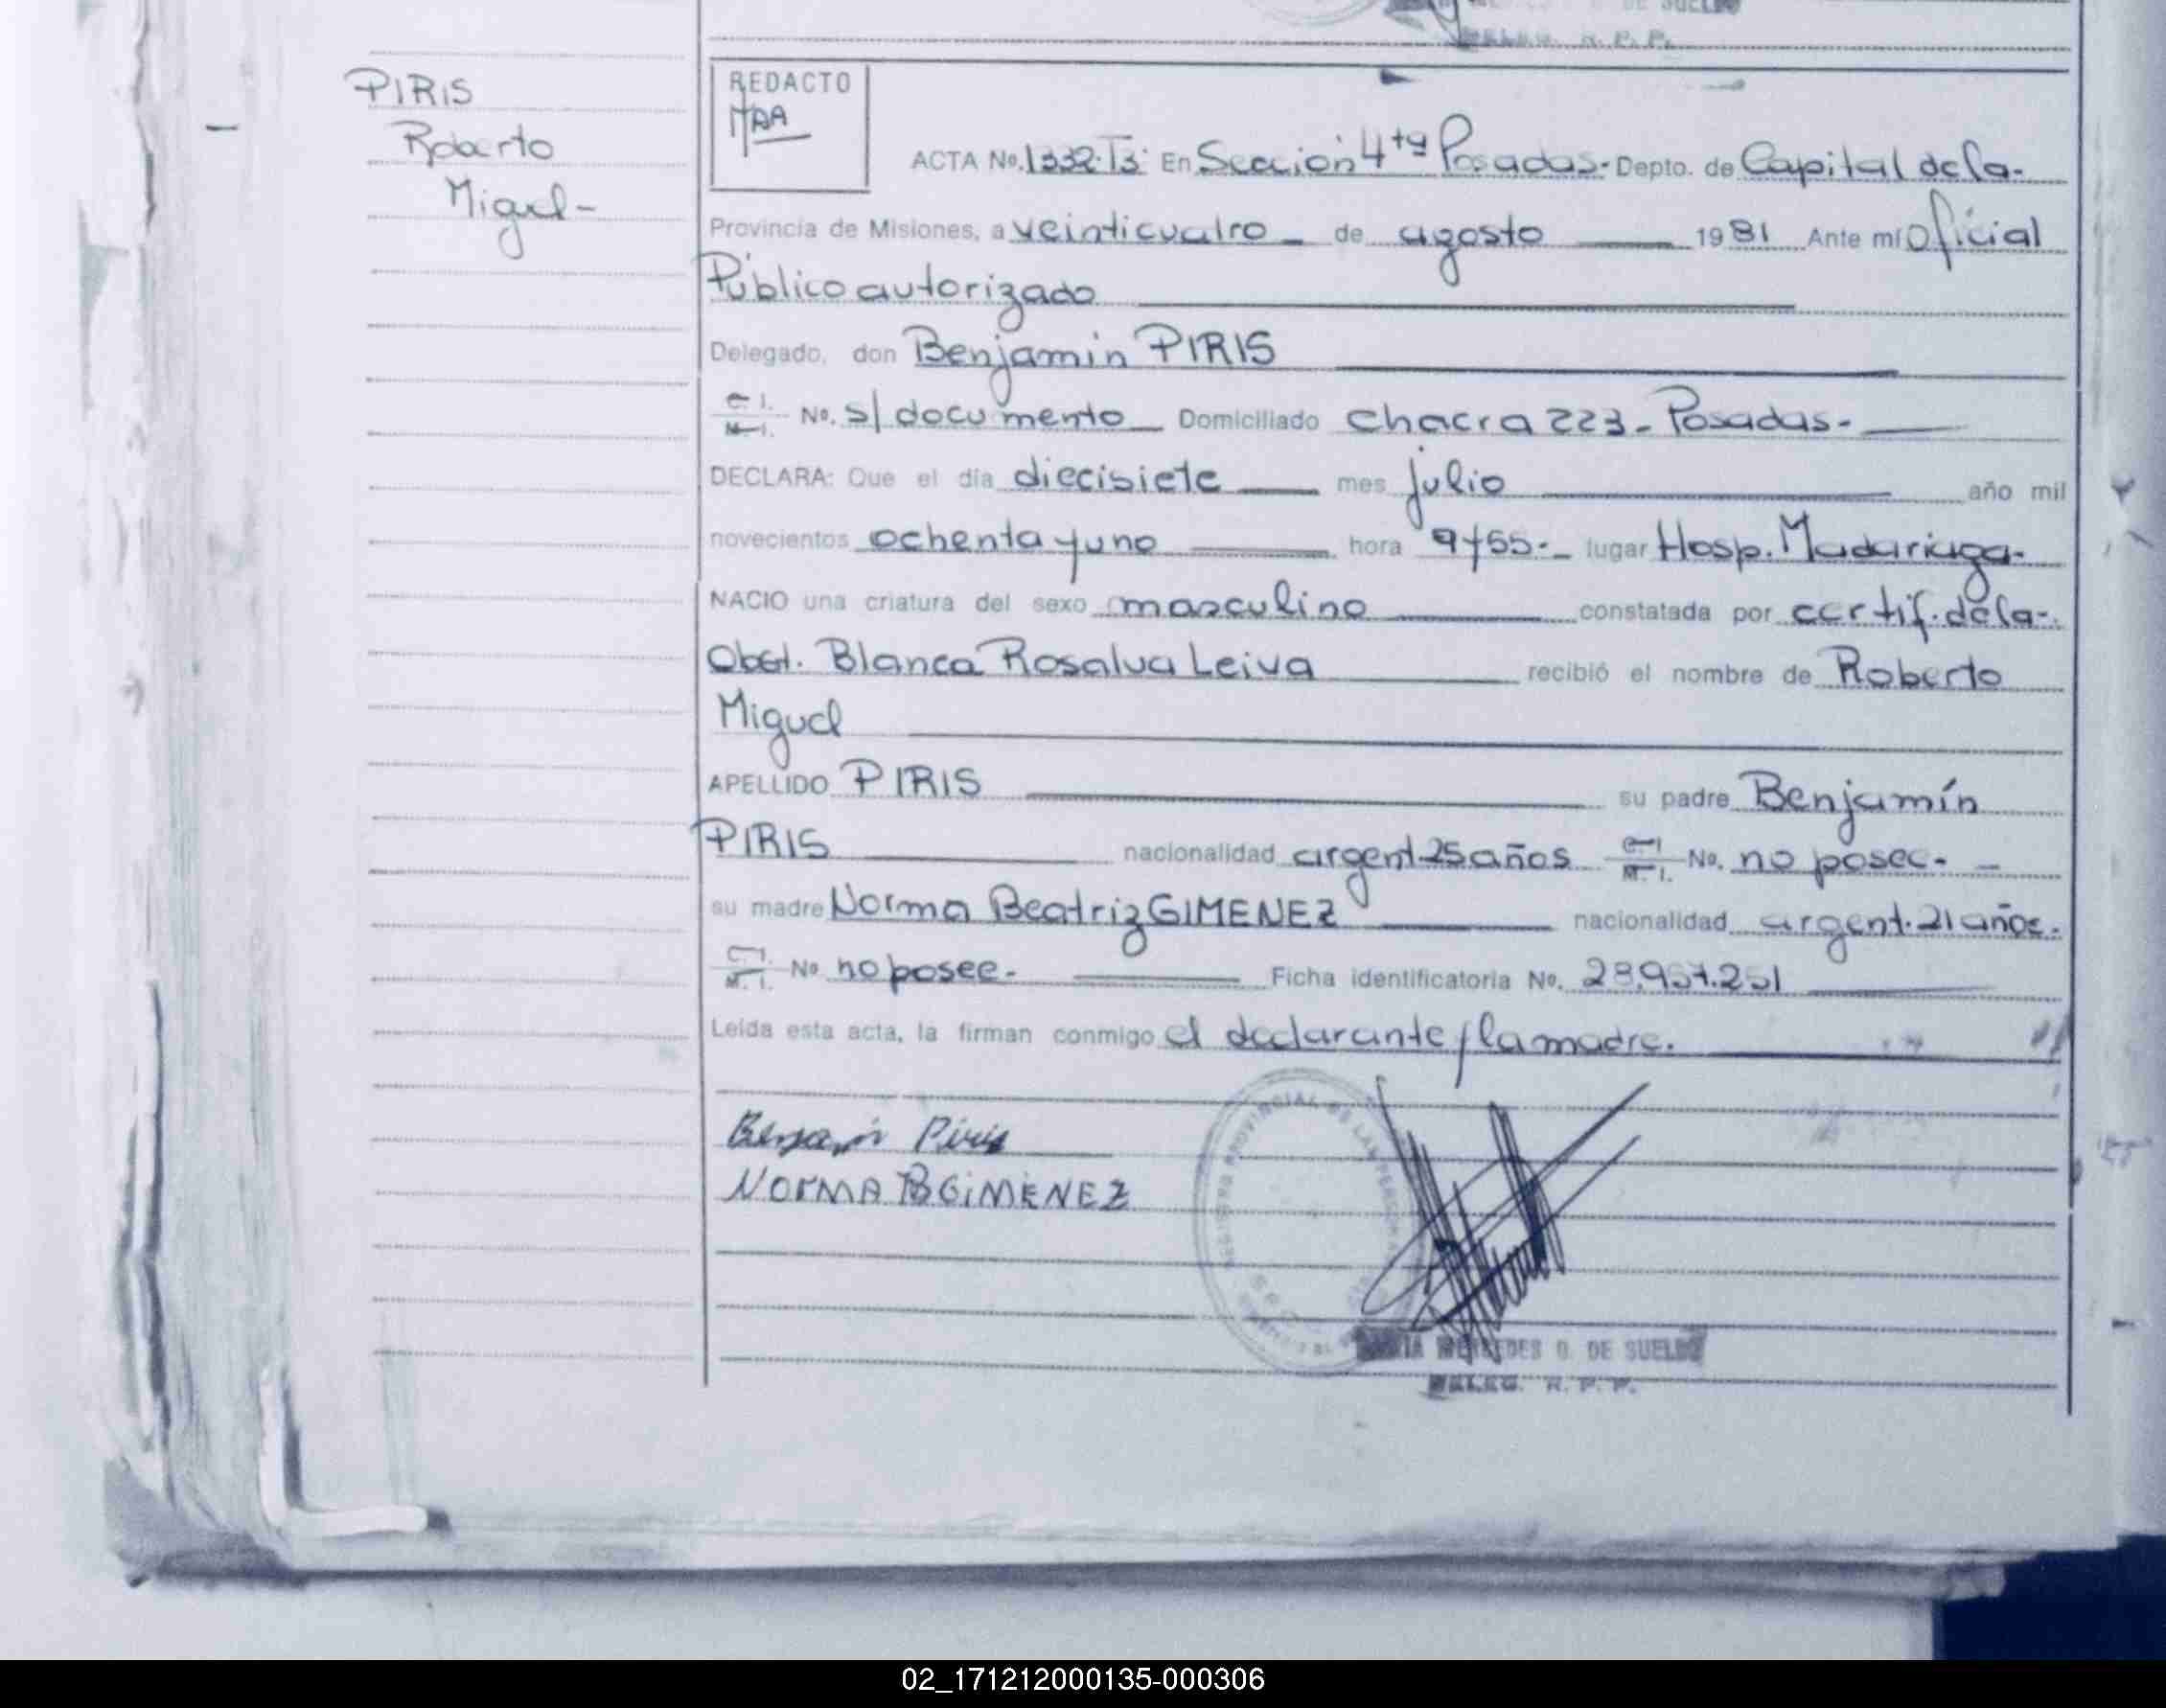 DE SUELDO
DELEG. R. P. P.
PIRIS
Roberto
Miguel-
REDACTO
ACTA No. 1332. T3. En Sección 4ta Posadas- Depto. de Capital de la-
Provincia de Misiones, a veinticuatro - de agosto 1981 Ante mí Oficial
Público autorizado
Delegado, don Benjamin PIRIS
C. I. M. I. No. s/documento - Domiciliado Chacra 223- Posadas.-
DECLARA: Que el día diecisiete mes julio año mil
novecientos ochenta y uno hora 9 y 55.- lugar Hosp. Madariaga-
NACIO una criatura del sexo masculino constatada por certif. de la-
Obst. Blanca Rosalva Leiva recibió el nombre de Roberto
Miguel
APELLIDO PIRIS su padre Benjamín
PIRIS nacionalidad argent. 25 años C. I. M. I. No. no posee. -
su madre Norma Beatriz GIMENEZ nacionalidad argent. 21 años.
C. I. M. I. No no posee.- Ficha identificatoria No. 28.957.251
Leída esta acta, la firman conmigo el declarante y la madre.
Benjamin Piris
NORMA B GIMENEZ
REGISTRO PROVINCIAL DE LAS PERSONAS
MARIA MERCEDES O. DE SUELDO
DELEG. R. P. P.
02_171212000135-000306